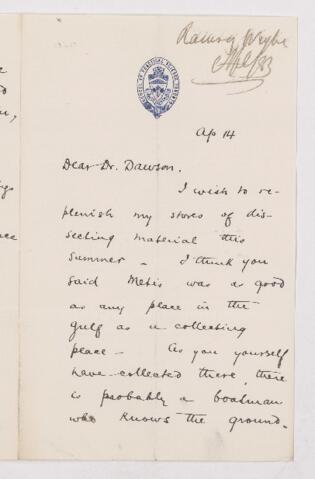 Ramsay Wright
SCHOOL OF PRACTICAL SCIENCE TORONTO
Ap 14
Dear Dr. Dawson.
I wish to re-
plenish my stores of dis-
secting material this
summer - I think you
said Metis was as good
as any place in the
gulf as a collecting
place - As you yourself
have collected there, there
is probably a boatman
who knows the ground.